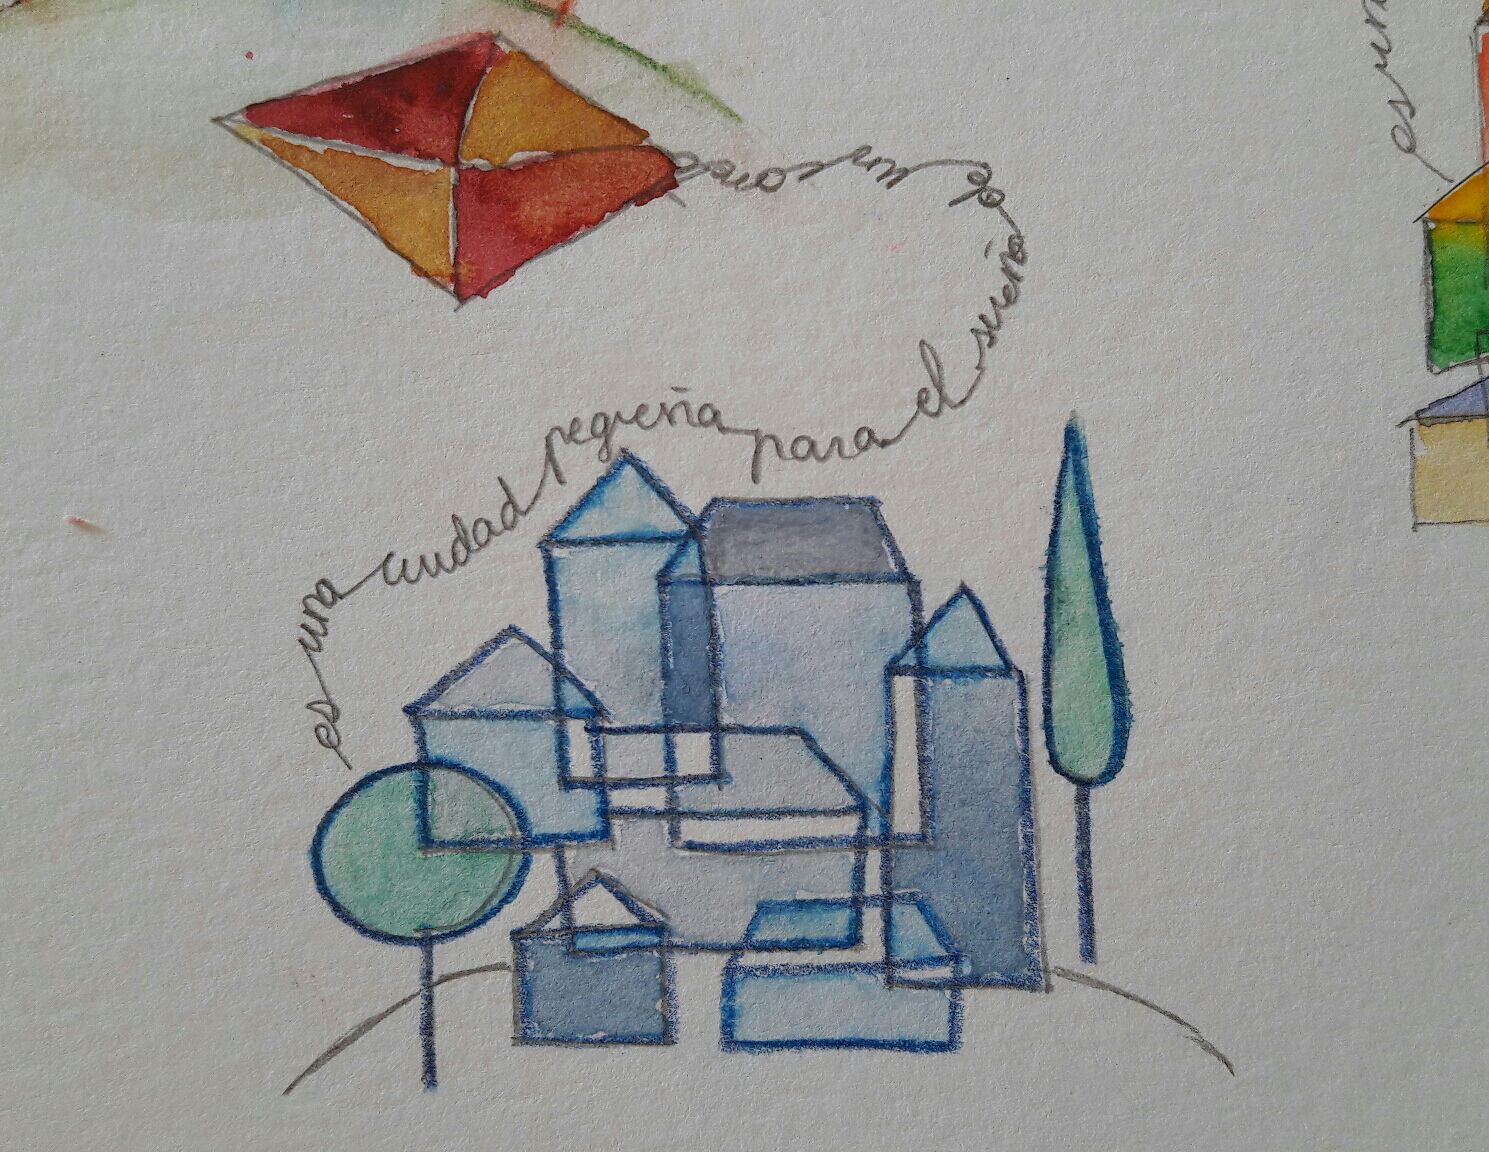 es una ciudad pequeña para el sueño de un
es un